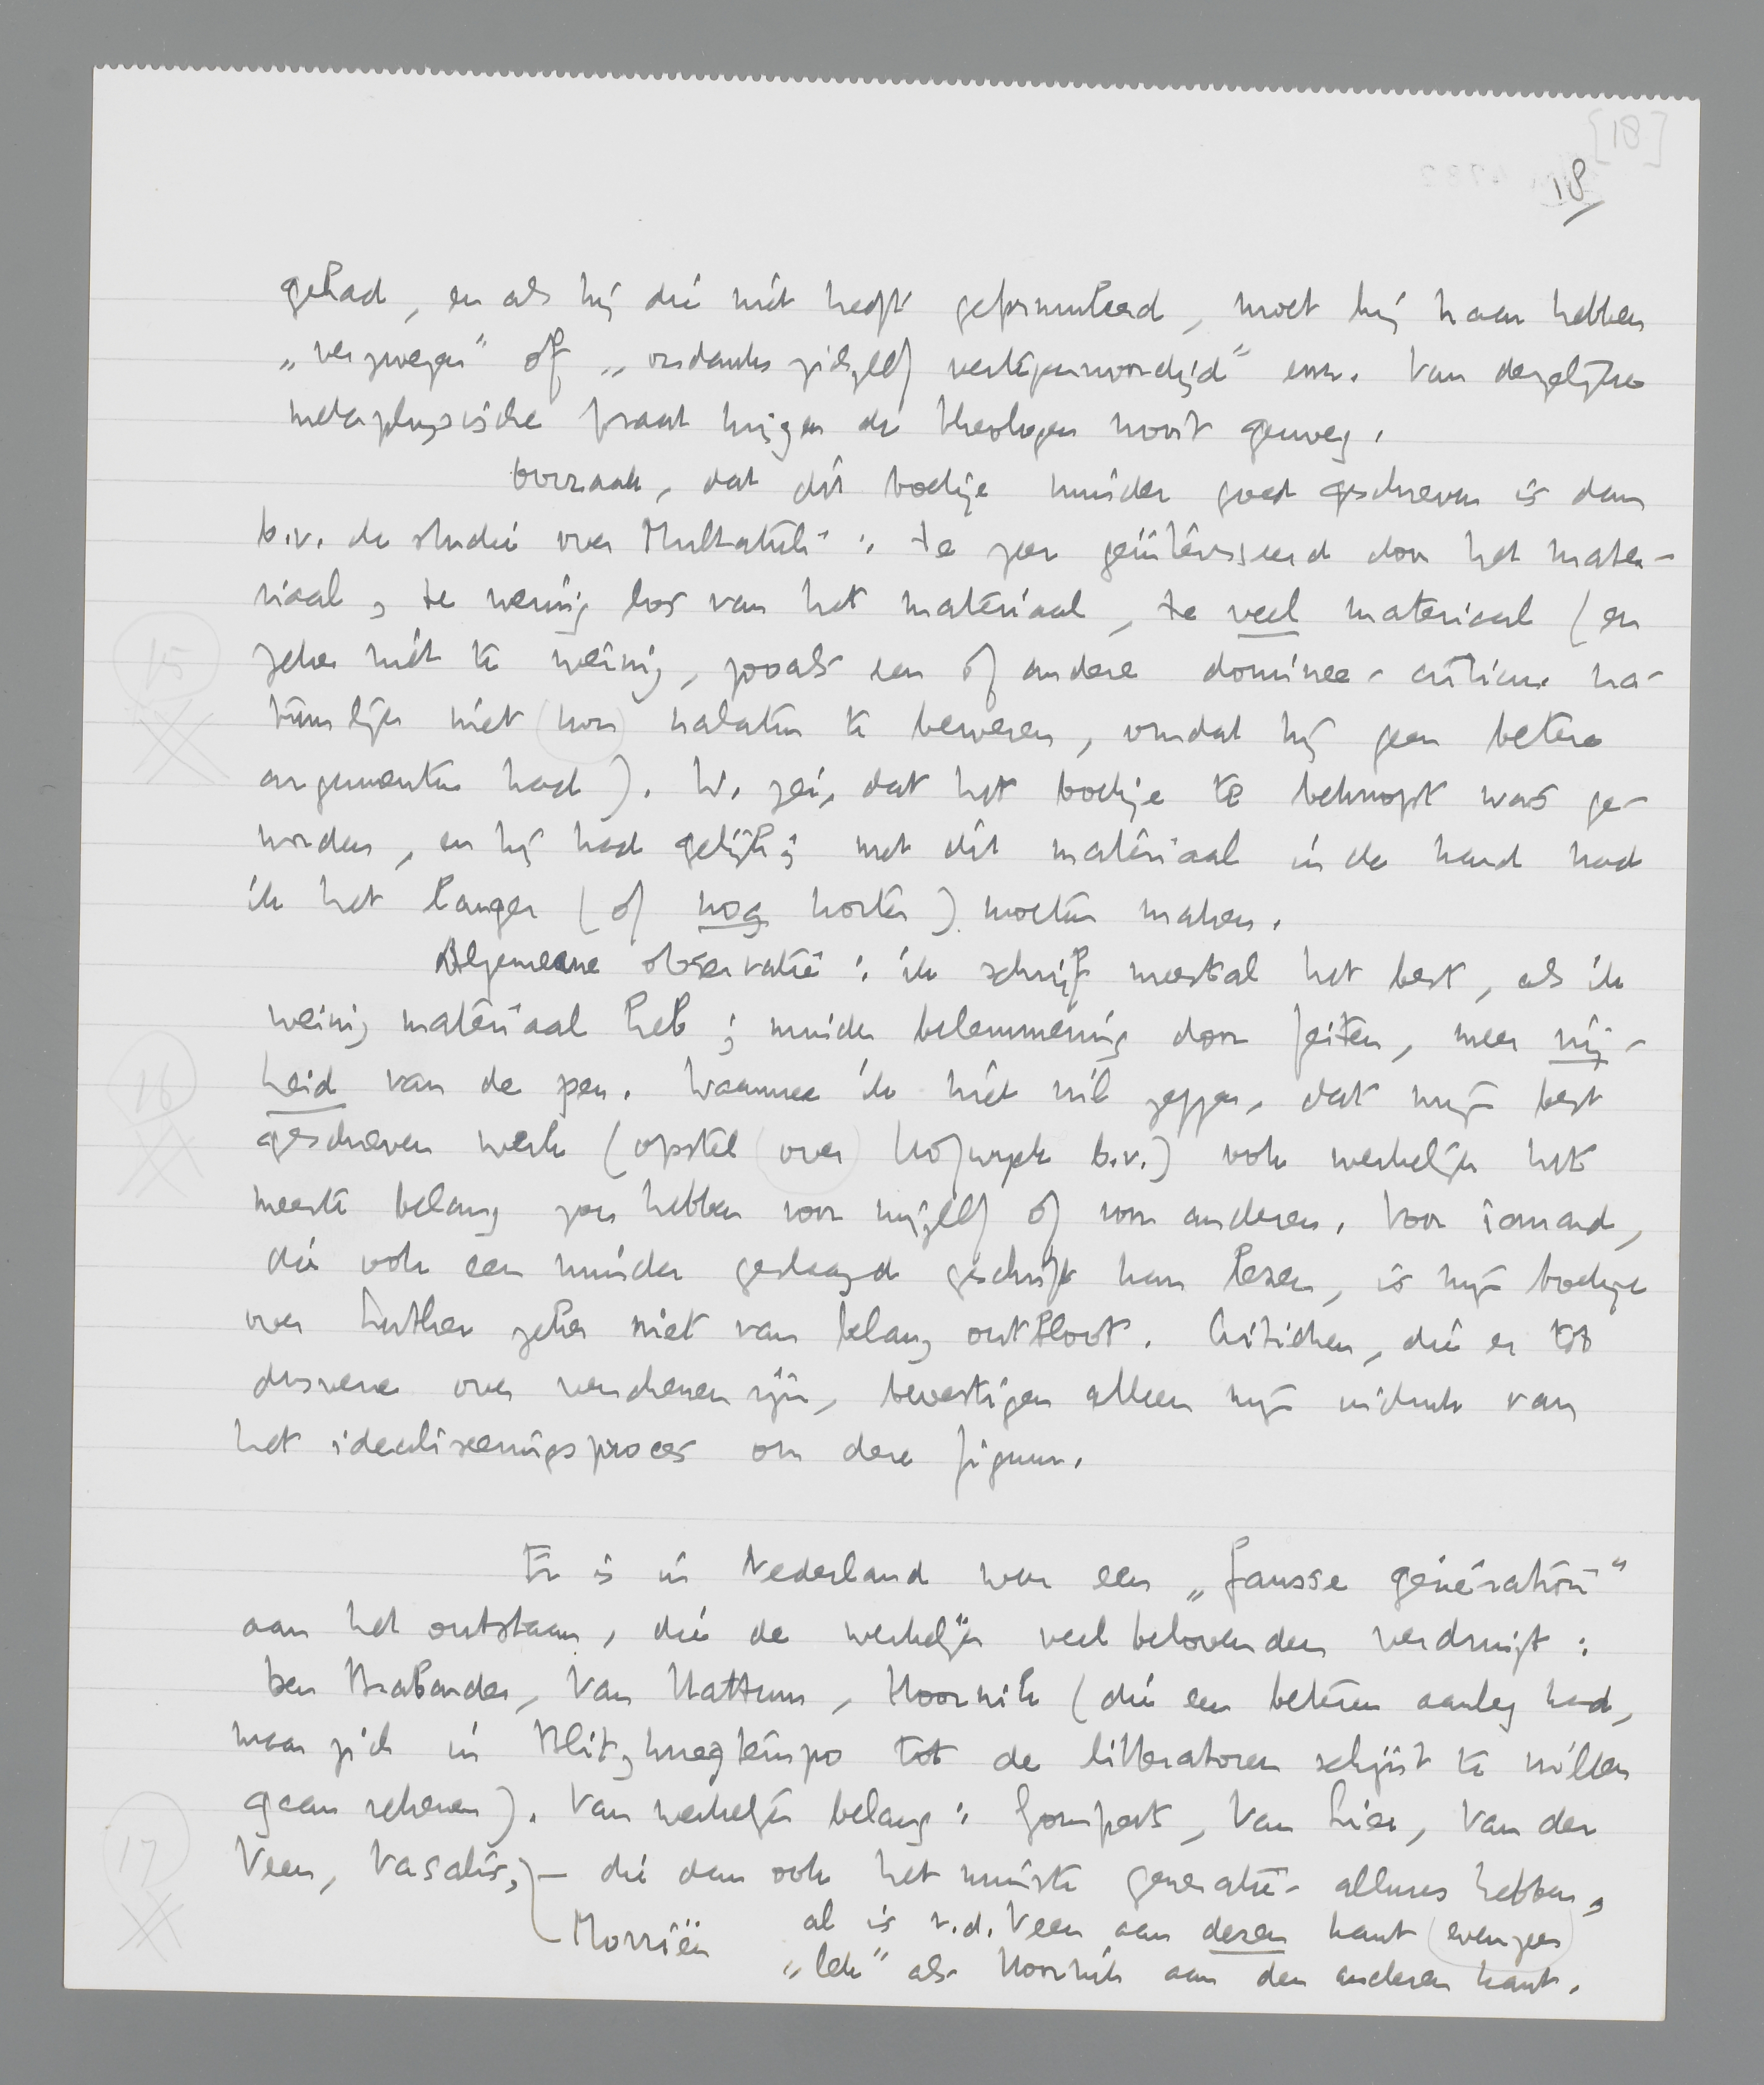 [18]
18
gehad, en als hij die niet heeft geformuleerd, moet hij haar hebben
„verzwegen” of „ondanks zichzelf vertegenwoordigd” enz. Van dergelijke
metaphysische praat krijgen de theologen nooit genoeg.
Oorzaak, dat dit boekje minder goed geschreven is dan
b.v. de studie over Multatuli: te zeer geïnteresseerd door het mate-
riaal, te weinig los van het materiaal, te veel materiaal (en
zeker niet te weinig, zooals een of andere dominee-criticus na-
tuurlijk niet kon nalaten te beweren, omdat hij geen betere
argumenten had). W. zei, dat het boekje te beknopt was ge-
worden, en hij had gelijk; met dit materiaal in de hand had
ik het langer (of nog korter) moeten maken.
Algemeene observatie: ik schrijf meestal het best, als ik
weinig materiaal heb; minder belemmering door feiten, meer vrij-
heid van de pen. Waarmee ik niet wil zeggen, dat mijn best
geschreven werk (opstel over Hofwyck b.v.) ook werkelijk het
meeste belang zou hebben voor mijzelf of voor anderen. Voor iemand,
die ook een minder geslaagd geschrift kan lezen, is mijn boekje
over Luther zeker niet van belang ontbloot. Critieken, die er tot
dusverre over verschenen zijn, bevestigen alleen mijn indruk van
het idealiseeringsproces om deze figuur.
Er is in Nederland weer een „fausse génération”
aan het ontstaan, die de werkelijk veelbelovenden verdringt:
Den Brabander, Van Hattum, Hoornik (die een beteren aanleg had,
maar zich in Blitzkriegtempo tot de litteratoren schijnt te willen
gaan rekenen). Van werkelijk belang: Gomperts, Van Lier, Van der
Veen, Vasalis, – die dan ook het minste generatie-allures hebben,
Morriën
al is v.d. Veen aan dezen kant evenzeer
„lek” als Hoornik aan den anderen kant.
15
16
17